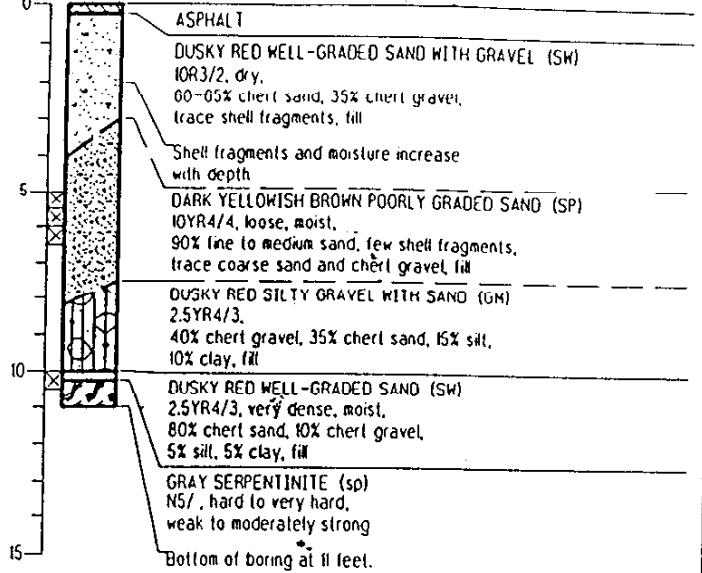 0
ASPHALT
DUSKY RED WELL-GRADED SAND WITH GRAVEL (SW)
10R3/2, dry,
60-65% chert sand, 35% chert gravel,
trace shell fragments, fill
Shell fragments and moisture increase
with depth
5
DARK YELLOWISH BROWN POORLY GRADED SAND (SP)
10YR4/4, loose, moist,
90% fine to medium sand, few shell fragments,
trace coarse sand and chert gravel, fill
DUSKY RED SILTY GRAVEL WITH SAND (GM)
2.5YR4/3,
40% chert gravel, 35% chert sand, 15% silt,
10% clay, fill
10
DUSKY RED WELL-GRADED SAND (SW)
2.5YR4/3, very dense, moist,
80% chert sand, 10% chert gravel,
5% silt, 5% clay, fill
GRAY SERPENTINITE (sp)
N5/, hard to very hard,
weak to moderately strong
15
Bottom of boring at 11 feet.